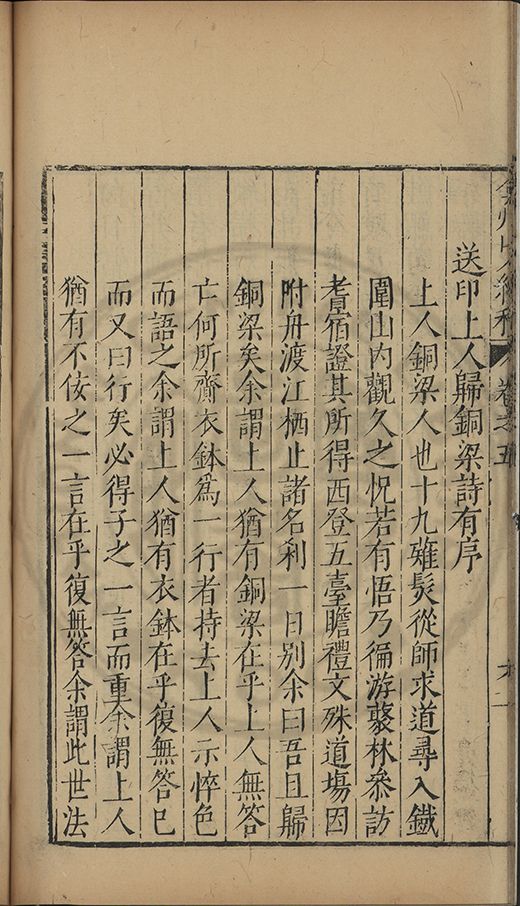 送印上人歸銅梁詩有序
上人銅梁人也十九薙髮從師求道尋入鐵
圍山內觀久之怳若有悟乃徧游藂林叅訪
耆宿證其所得西登五臺瞻禮文殊道塲因
附舟渡江栖止諸名刹一日別余曰吾且歸
銅梁矣余謂上人猶有銅梁在乎上人無答
亡何所齎衣鉢爲一行者持去上人示悴色
而語之余謂上人猶有衣鉢在乎復無答已
而又曰行矣必得子之一言而重余謂上人
猶有不佞之一言在乎復無答余謂此世法